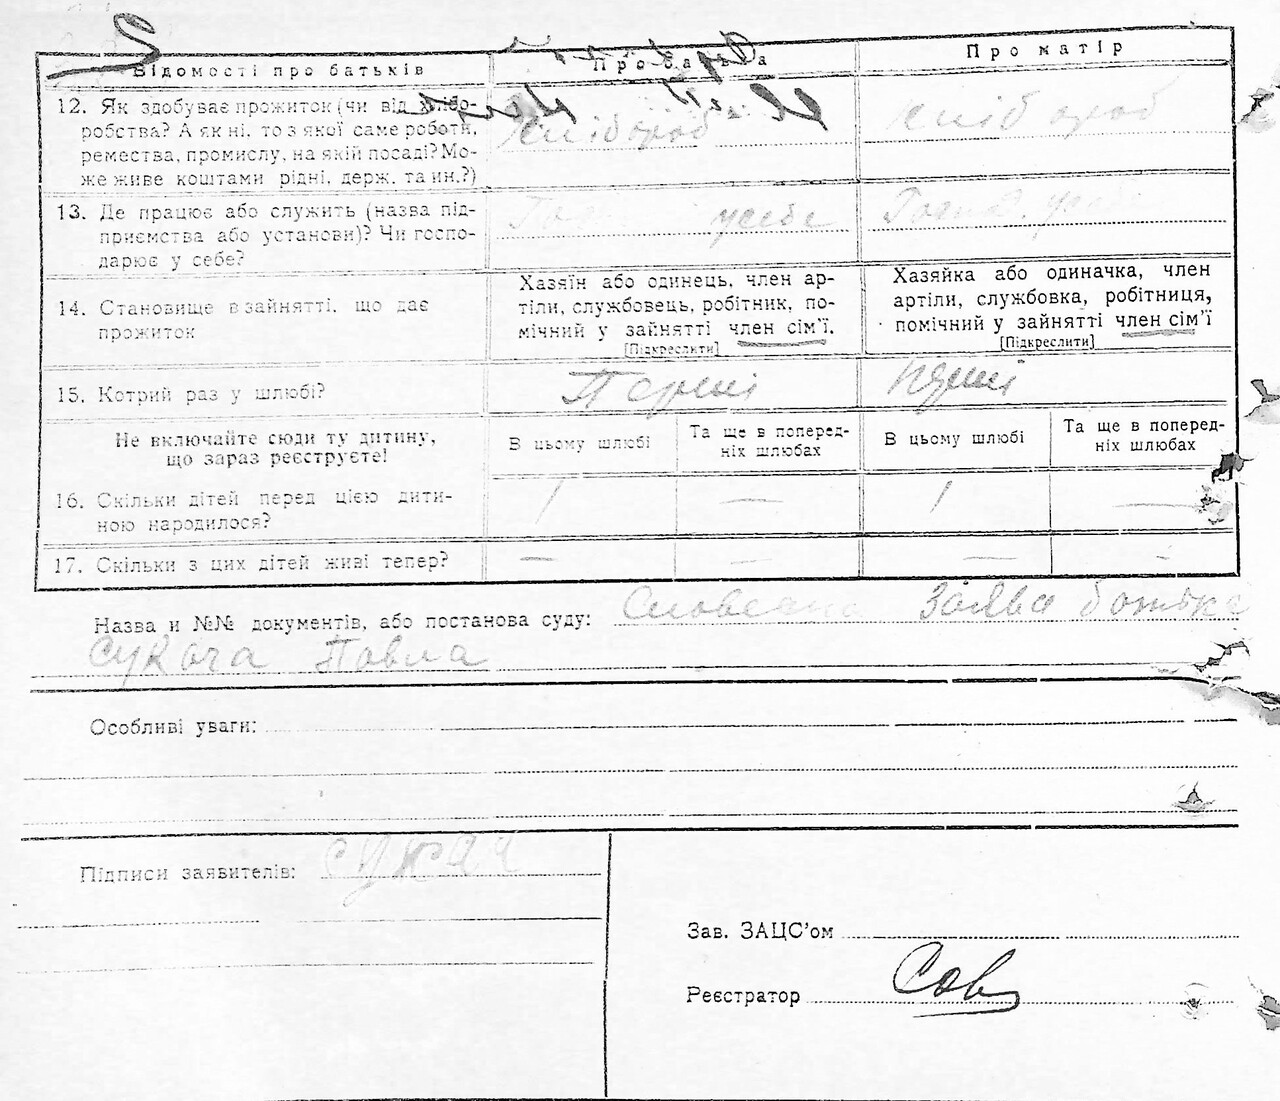 Відомості про батьків
Про батька
Про матір
12. Як здобуває прожиток (чи від хлібо-
робства? А як ні, то з якої саме роботи,
ремества, промислу, на якій посаді? Мо-
же живе коштами рідні, держ. та ин.?)
хлібороб
хлібороб
13. Де працює або служить (назва під-
приємства або установи)? Чи госпо-
дарює у себе?
усебе
14. Становище в зайнятті, що дає
прожиток
Хазяїн або одинець, член ар-
тіли, службовець, робітник, по-
мічний у зайнятті член сім'ї.
[Підкреслити]
Хазяйка або одиначка, член
артіли, службовка, робітниця,
помічний у зайнятті член сім'ї
[Підкреслити]
15. Котрий раз у шлюбі?
Перший
Не включайте сюди ту дитину,
що зараз реєструєте!
В цьому шлюбі
Та ще в поперед-
ніх шлюбах
В цьому шлюбі
Та ще в поперед-
ніх шлюбах
16. Скільки дітей перед цією дити-
ною народилося?
1 — 1 —
17. Скільки з цих дітей живі тепер?
— — — —
Назва и №№ документів, або постанова суду: Словесна Заява батька
Сукача Павла
Особливі уваги:
Підписи заявителів: Сукач
Зав. ЗАЦС'ом
Реєстратор Сов